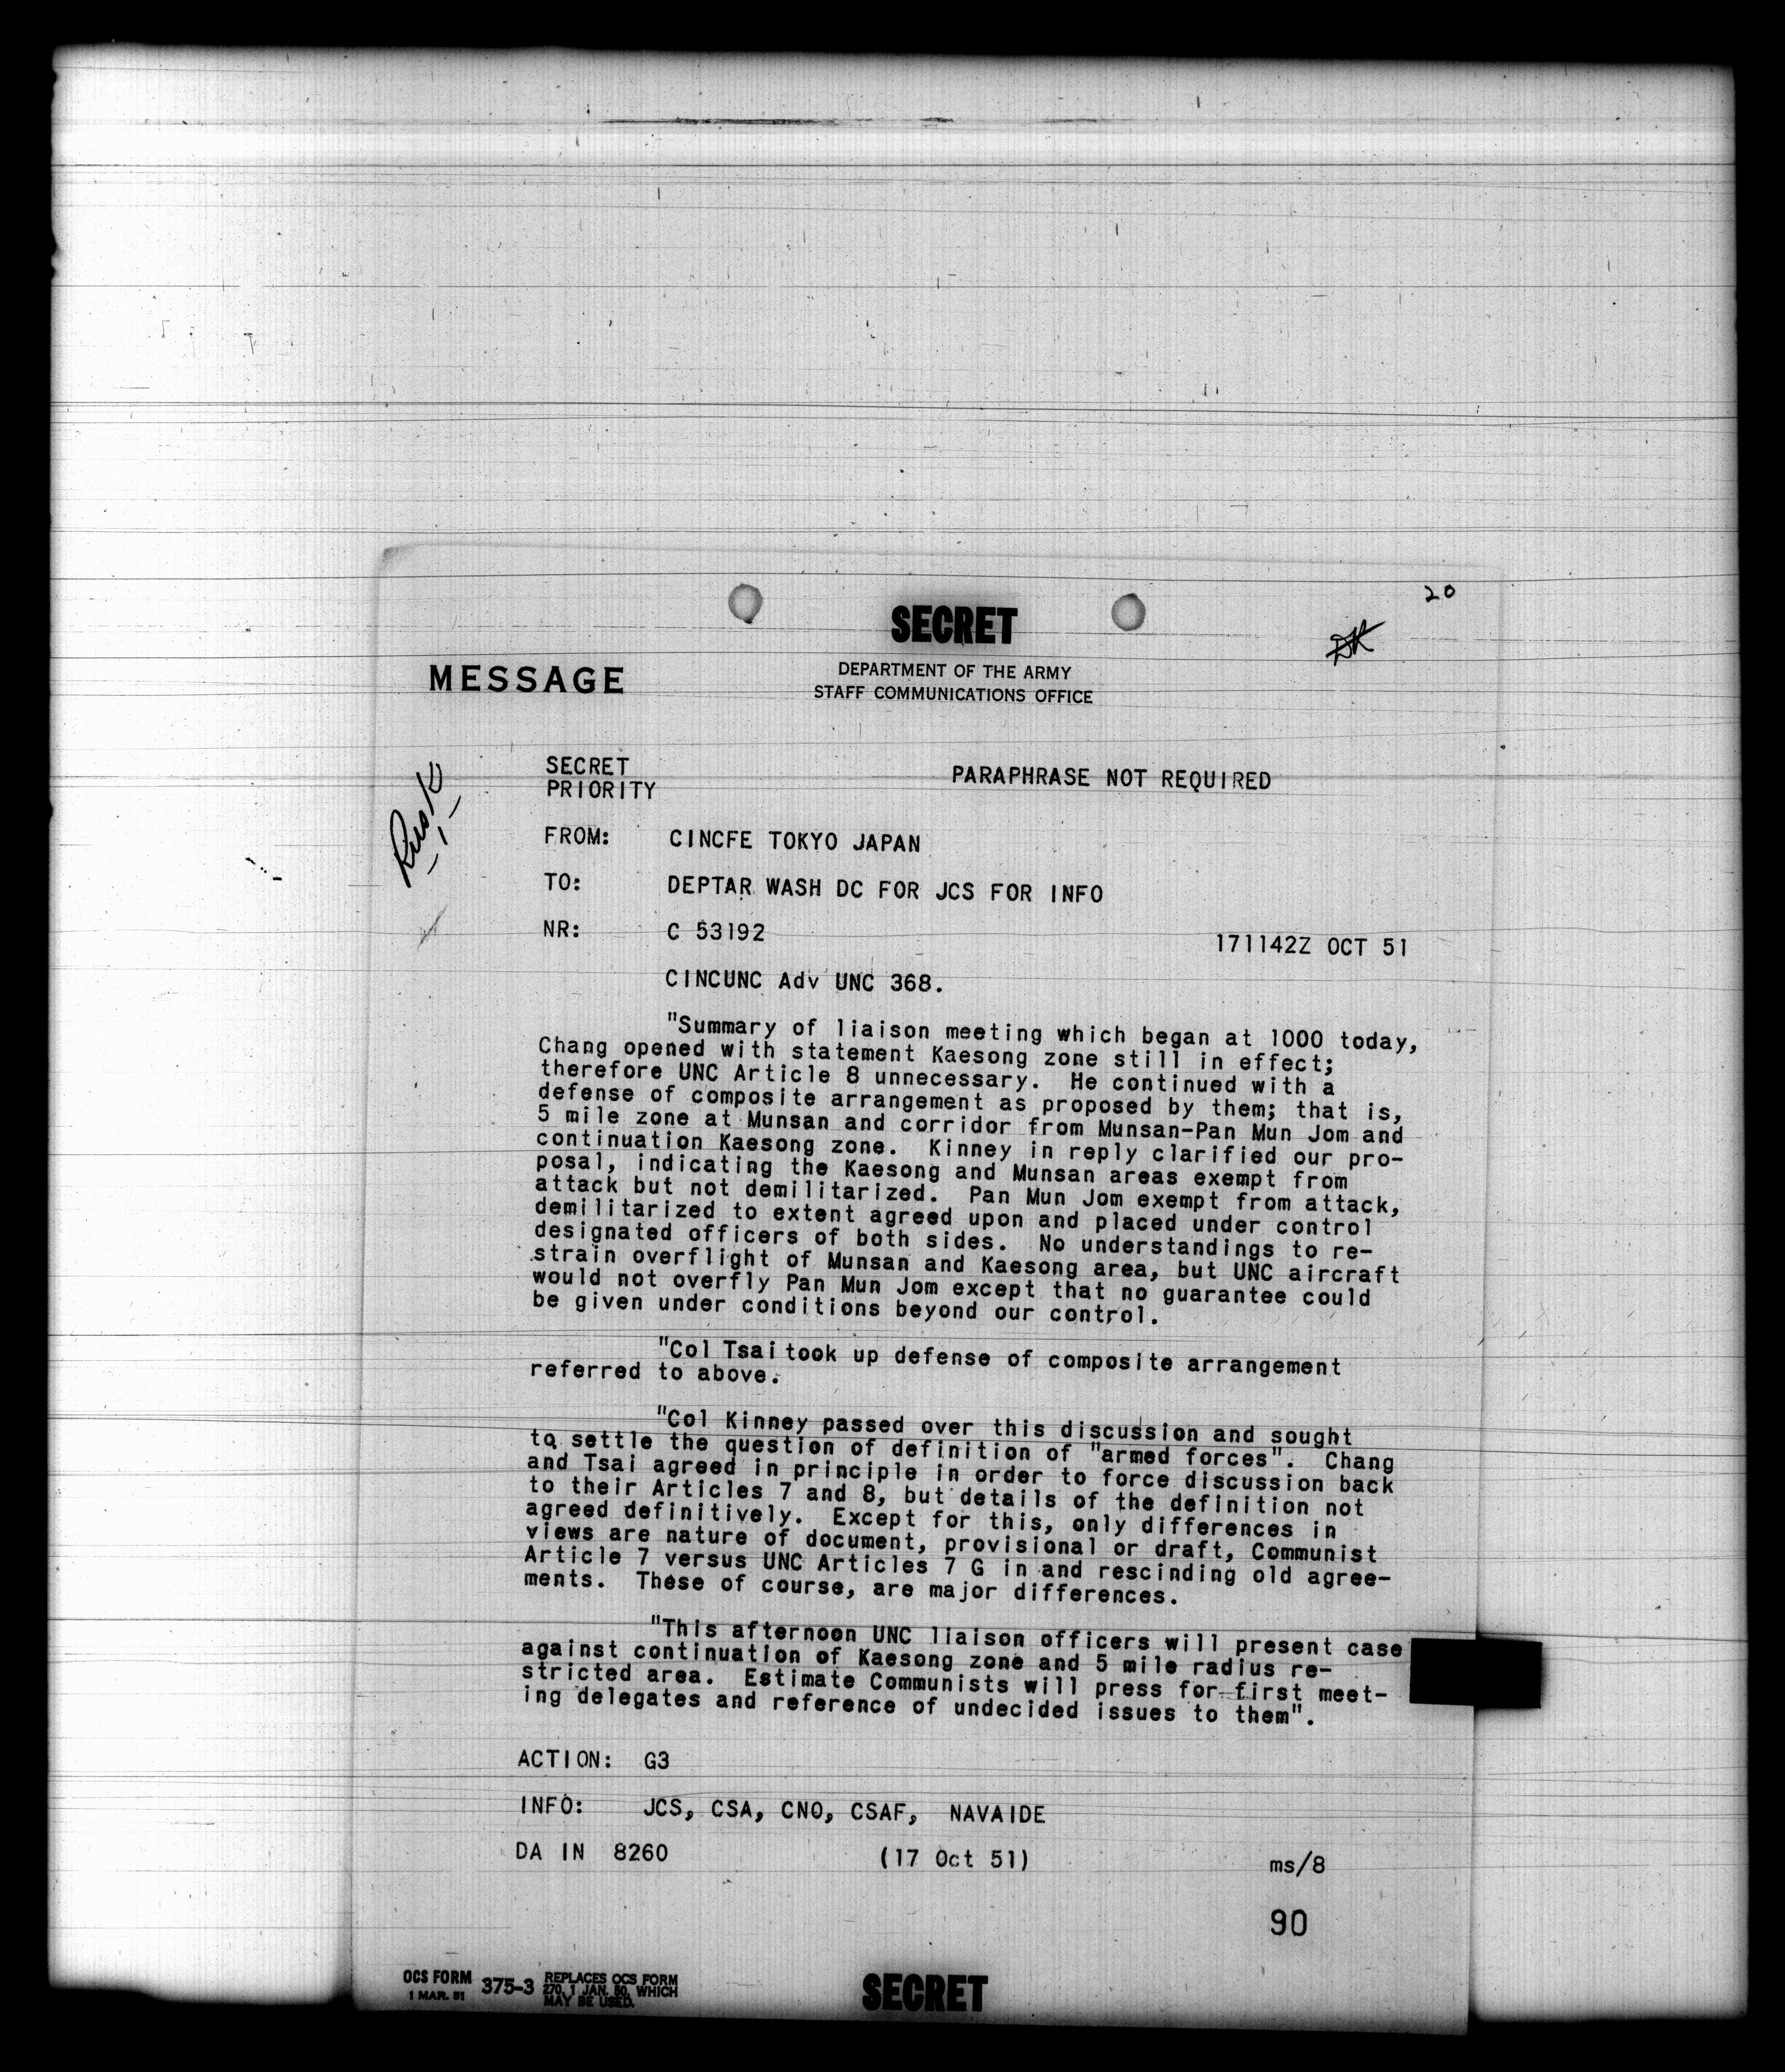 20
SECRET
MESSAGE
DEPARTMENT OF THE ARMY
STAFF COMMUNICATIONS OFFICE
Rusk
SECRET
PRIORITY
PARAPHRASE NOT REQUIRED
FROM: CINCFE TOKYO JAPAN
TO: DEPTAR WASH DC FOR JCS FOR INFO
NR: C 53192
171142Z OCT 51
CINCUNC Adv UNC 368.
"Summary of liaison meeting which began at 1000 today,
Chang opened with statement Kaesong zone still in effect;
therefore UNC Article 8 unnecessary. He continued with a
defense of composite arrangement as proposed by them; that is,
5 mile zone at Munsan and corridor from Munsan-Pan Mun Jom and
continuation Kaesong zone. Kinney in reply clarified our pro-
posal, indicating the Kaesong and Munsan areas exempt from
attack but not demilitarized. Pan Mun Jom exempt from attack,
demilitarized to extent agreed upon and placed under control
designated officers of both sides. No understandings to re-
strain overflight of Munsan and Kaesong area, but UNC aircraft
would not overfly Pan Mun Jom except that no guarantee could
be given under conditions beyond our control.
"Col Tsai took up defense of composite arrangement
referred to above.
"Col Kinney passed over this discussion and sought
to settle the question of definition of "armed forces". Chang
and Tsai agreed in principle in order to force discussion back
to their Articles 7 and 8, but details of the definition not
agreed definitively. Except for this, only differences in
views are nature of document, provisional or draft, Communist
Article 7 versus UNC Articles 7 G in and rescinding old agree-
ments. These of course, are major differences.
"This afternoon UNC liaison officers will present case
against continuation of Kaesong zone and 5 mile radius re-
stricted area. Estimate Communists will press for first meet-
ing delegates and reference of undecided issues to them".
ACTION: G3
INFO: JCS, CSA, CNO, CSAF, NAVAIDE
DA IN 8260 (17 Oct 51) ms/8
90
OCS FORM 375-3 REPLACES OCS FORM
1 MAR. 51 270, 1 JAN. 50, WHICH
MAY BE USED.
SECRET